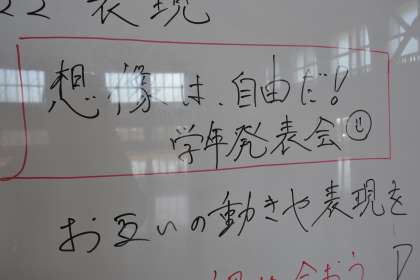 22 表現
想像は、自由だ!
学年発表会
お互いの動きや表現を
合おう